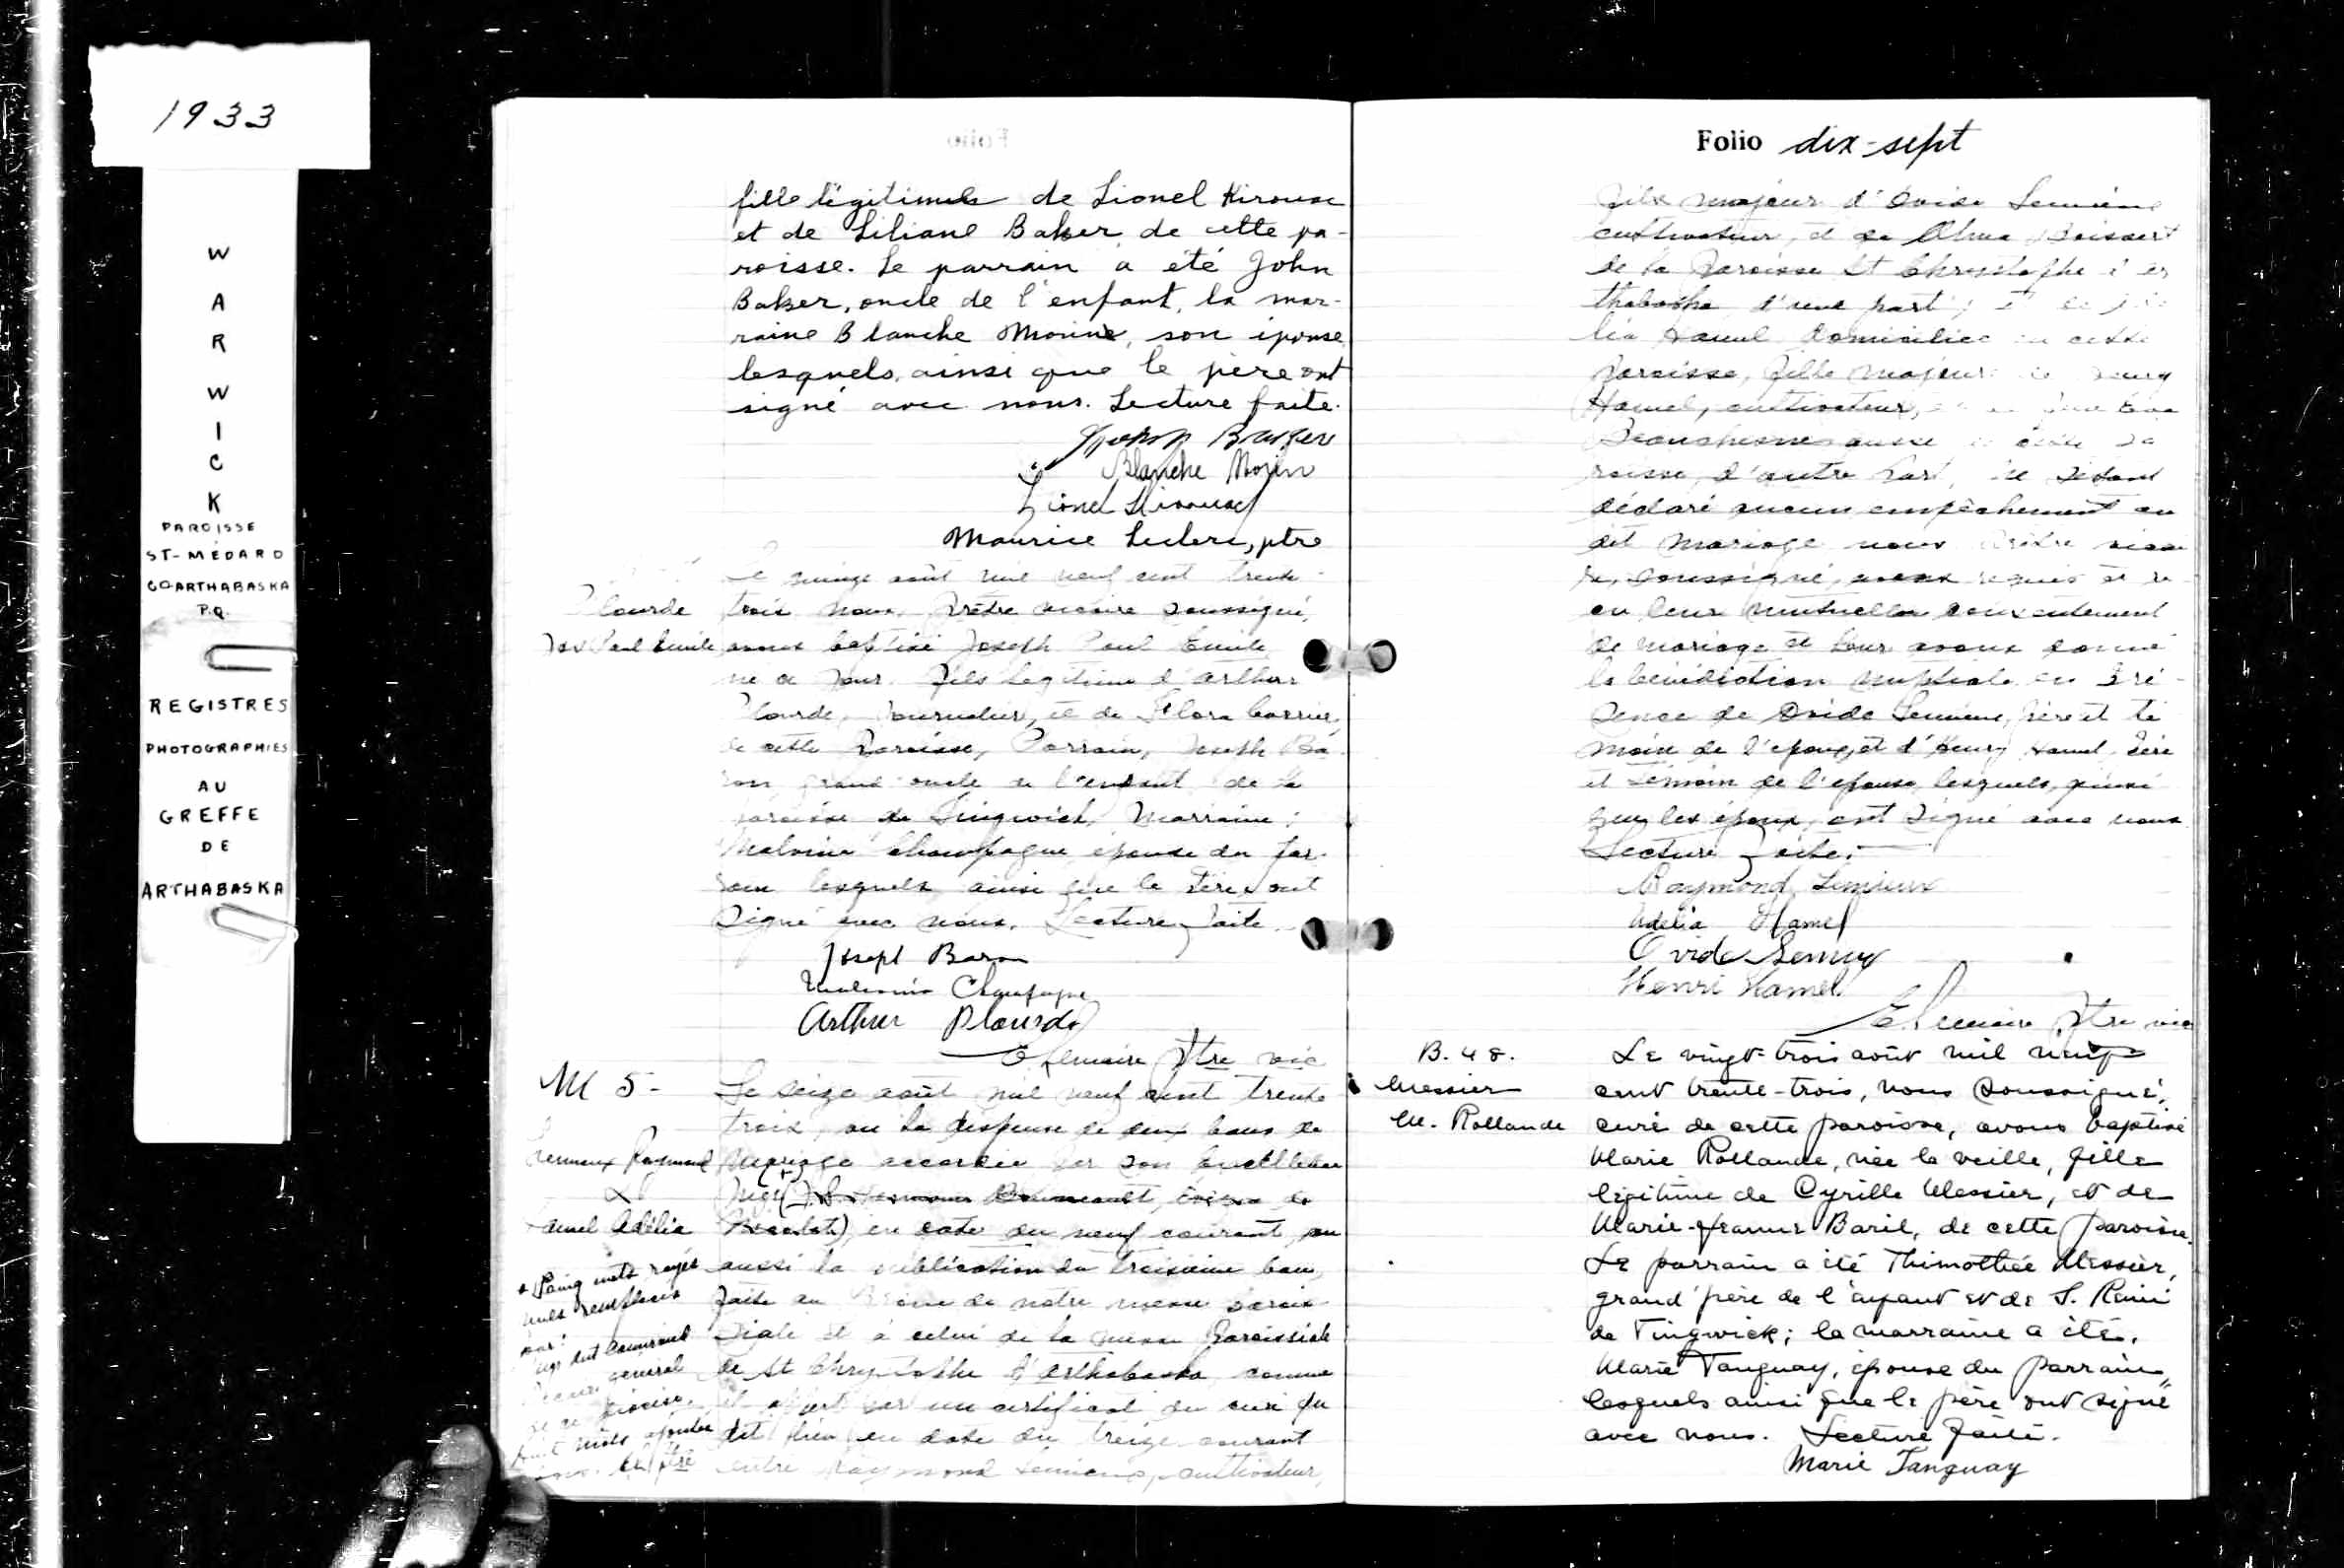 1933
W
A
R
W
I
C
K
PAROISSE
ST-MÉDARD
CO ARTHABASKA
P.Q.
REGISTRES
PHOTOGRAPHIES
AU
GREFFE
DE
ARTHABASKA
Folio
fille légitime de Lionel Kirouac
et de Liliane Baker, de cette pa-
roisse. Le parrain a été John
Baker, oncle de l'enfant, la mar-
raine Blanche Morin, son épouse
lesquels, ainsi que le père ont
signé avec nous. Lecture faite.
John Baker
Blanche Morin
Lionel Kirouac
Maurice Leclerc, ptre
Le quinze août mil neuf cent trente-
Plourde
trois nous, Prêtre vicaire soussigné,
Jos Paul Emile
avons baptisé Joseph Paul Emile
né ce jour fils légitime d'Arthur
Plourde, journalier, et de Flora
de cette Paroisse, Parrain, Joseph Ba-
ron grand oncle de l'enfant de la
paroisse de Tingwick, Marraine:
Malvina Champagne épouse du par-
rain lesquels ainsi que le Père ont
signé avec nous. Lecture faite.
Joseph Baron
Malvina Champagne
Arthur Plourde
E. Lemaire Ptre vic
M 5-
Le seize août mil neuf cent trente
trois, vu la dispense de deux bans de
Lemieux Raymond
Mariage accordée par Son Excellence
&
Mgr (+)
Hamel Adélia
Nicolet) en date du neuf courant, vu
+ Cinq mots rayés
nuls remplacés
par:
aussi la publication du troisième ban,
faite au Prône de notre messe parois-
siale et à celui de la messe Paroissiale
général
de St Christophe d'Arthabaska, comme
de ce diocèse.
il appert par un certificat du curé du
huit mots ajoutés
dit lieu en date du treize courant
ptre
entre Raymond Lemieux, cultivateur,
Folio dix-sept
fils majeur d'Ovide Lemieux
cultivateur, et de Alma Boisvert
de la Paroisse St Christophe d'Ar
thabaska d'une part; et de
lia Hamel domiciliée en cette
Paroisse, fille majeure de Henry
Hamel, cultivateur,
Beauchesne aussi de cette Pa
roisse, d'autre part,
déclaré aucun empêchement au
dit mariage nous Prêtre vicai
re, soussigné, avons requis et re-
çu leur mutuel consentement
de mariage et leur avons donné
la bénédiction nuptiale en Pré-
sence de Ovide Lemieux, père et té
moin de l'époux, et d'Henry Hamel, Père
et témoin de l'épouse, lesquels, ainsi
que les époux, ont signé avec nous.
Lecture faite.
Raymond Lemieux
Adélia Hamel
Ovide Lemieux
Henri Hamel
E. Lemaire Ptre vic
B. 48.
Le vingt-trois août mil neuf
Messier
cent trente-trois, nous soussigné,
M. Rollande
curé de cette paroisse, avons baptisé
Marie Rollande, née la veille, fille
légitime de Cyrille Messier, et de
Marie-Jeanne Baril, de cette paroisse.
Le parrain a été Thimothée Messier,
grand'père de l'enfant et de S. Rémi
de Tingwick; la marraine a été,
Marie Tanguay, épouse du parrain,
lesquels ainsi que le père ont signé
avec nous. Lecture faite.
Marie Tanguay